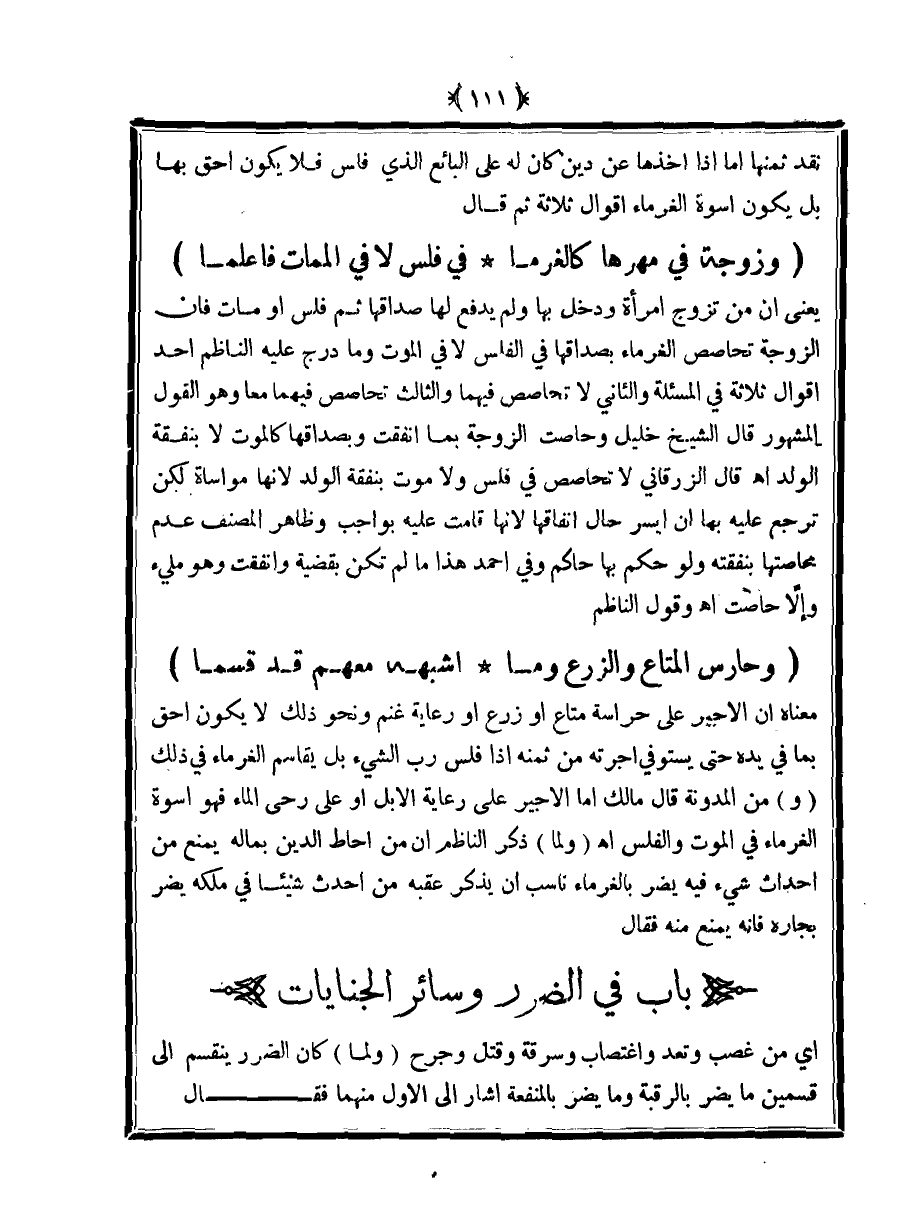 ﴿ ١١١ ﴾
نقد ثمنها اما اذا اخذها عن دين كان له على البائع الذي فلس فلا يكون احق بها
بل يكون اسوة الغرماء اقوال ثلاثة ثم قال
( وزوجة في مهرها كالغرما * في فلس لا في الممات فاعلما )
يعنى ان من تزوج امرأة ودخل بها ولم يدفع لها صداقها ثم فلس او مات فان
الزوجة تحاصص الغرماء بصداقها في الفلس لا في الموت وما درج عليه الناظم احد
اقوال ثلاثة في المسئلة والثاني لا تحاصص فيهما والثالث تحاصص فيهما معا وهو القول
المشهور قال الشيخ خليل وحاصت الزوجة بما انفقت وبصداقها كالموت لا بنفقة
الولد اه قال الزرقاني لا تحاصص في فلس ولا موت بنفقة الولد لانها مواساة لكن
ترجع عليه بها ان ايسر حال انفاقها لانها قامت عليه بواجب وظاهر المصنف عدم
محاصتها بنفقته ولو حكم بها حاكم وفي احمد هذا ما لم تكن بقضية وانفقت وهو مليء
وإلّا حاصّت اه وقول الناظم
( وحارس المتاع والزرع وما * اشبهه معهم قد قسما )
معناه ان الاجير على حراسة متاع او زرع او رعاية غنم ونحو ذلك لا يكون احق
بما في يده حتى يستوفي اجرته من ثمنه اذا فلس رب الشيء بل يقاسم الغرماء في ذلك
( و ) من المدونة قال مالك اما الاجير على رعاية الابل او على رحى الماء فهو اسوة
الغرماء في الموت والفلس اه ( ولما ) ذكر الناظم ان من احاط الدين بماله يمنع من
احداث شيء فيه يضر بالغرماء ناسب ان يذكر عقبه من احدث شيئا في ملكه يضر
بجاره فانه يمنع منه فقال
باب في الضرر وسائر الجنايات
اي من غصب وتعد واغتصاب وسرقة وقتل وجرح ( ولما ) كان الضرر ينقسم الى
قسمين ما يضر بالرقبة وما يضر بالمنفعة اشار الى الاول منهما فقال